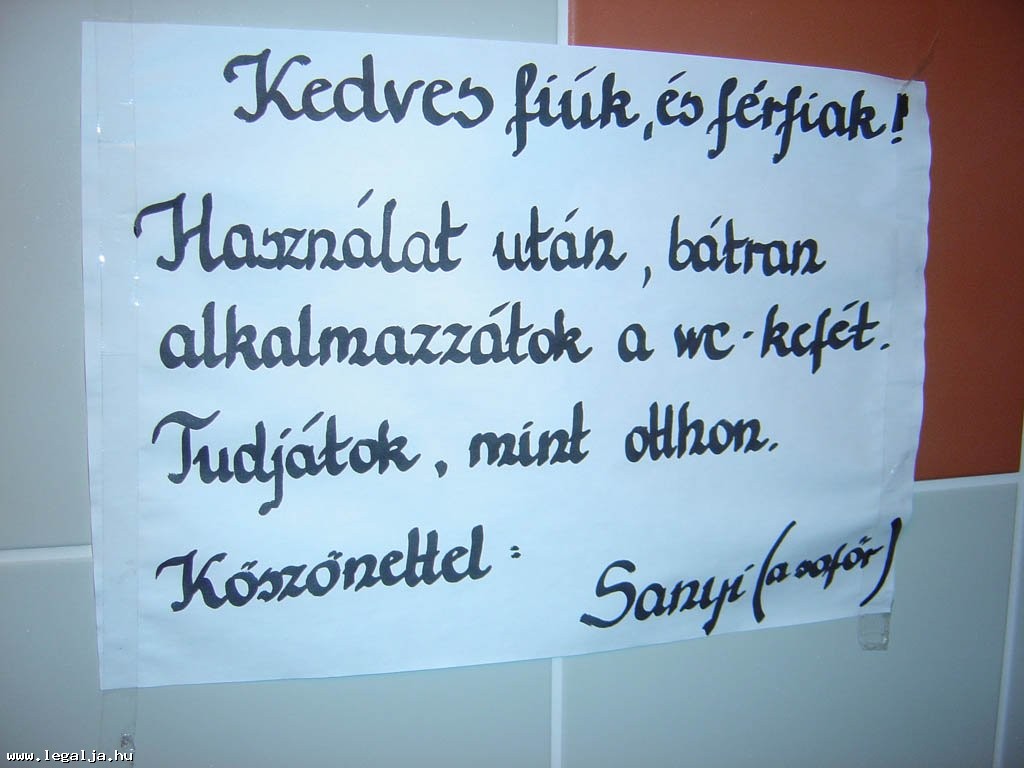 Kedves fiúk, és férfiak!
Használat után, bátran
alkalmazzátok a wc-kefét.
Tudjátok, mint otthon.
Köszönettel:
Sanyi (a sofőr)
www.legalja.hu